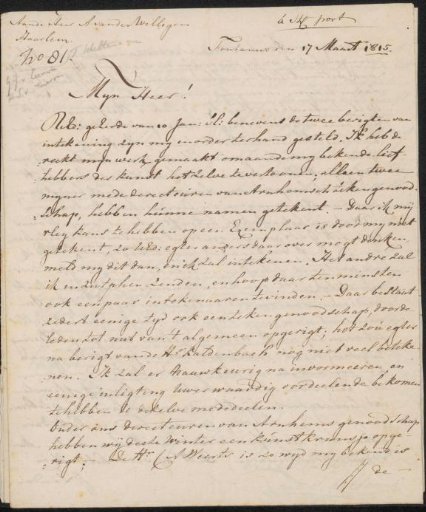 à 8 St. port
Aan den Heer A. van der Willigen
Haarlem
No 81.
17 Maart 1815.
Myn Heer!
geëerde van 10 Jan. ll: benevens de twee berigten van
intekening zyn my in order ter hand gesteld. Ik heb de
werk gemaakt om aan de my bekende lief
hebbers der kunst het zelve te vertoonen; alleen twee
myner mede directeuren van Arnhems teken genood-
schap, hebben hunne namen getekent. Daar ik my
vley kans te hebben op een Exemplaar is door my niet
getekent, zo UEd: egter anders daar over mogt denken
meld my dit dan, en ik zal intekenen. Het andre zal
ik en zenden, en hoop daar ten minsten
ook een paar intekenaaren te vinden. Daar bestaat
zedert eenige tyd ook een teken genootschap, door de
tot nut van 't algemeen opgerigt, het zou egter
na berigt van de Hr nog niet veel beteke
nen. Ik zal er nauwkeurig na informeeren en
eenige inligting Uwer waardig oordeelende bekomen
te hebben U dezelve mededeelen.
Onder ons directeuren van Arnhems genootschap
hebben wy deeze winter een kunst kransje opge
rigt; de Hr. is zo wyd my bekend is
de